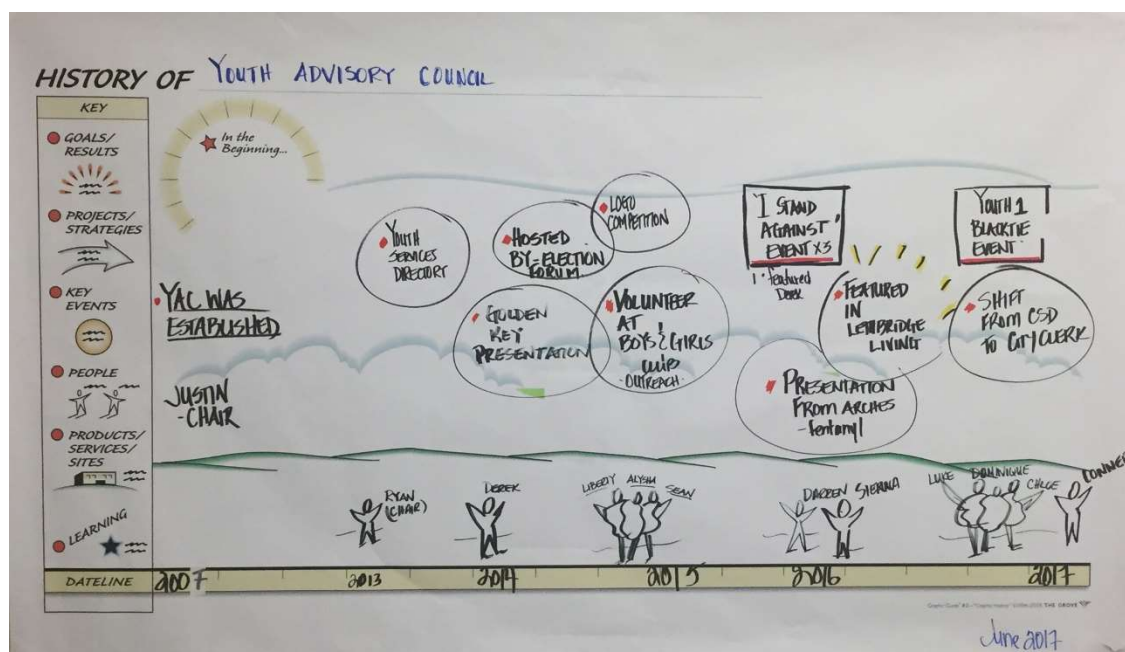 HISTORY OF YOUTH ADVISORY COUNCIL
KEY
GOALS/
RESULTS
PROJECTS/
STRATEGIES
KEY
EVENTS
PEOPLE
PRODUCTS/
SERVICES/
SITES
LEARNING
DATELINE
In the
Beginning...
YAC WAS
ESTABLISHED
JUSTIN
-CHAIR
YOUTH
SERVICES
DIRECTORY
HOSTED
BY-ELECTION
FORUM
LOGO
COMPETITION
GOLDEN
KEY
PRESENTATION
VOLUNTEER
AT
BOYS & GIRLS
CLUB
-OUTREACH-
'I STAND
AGAINST'
EVENT X3
featured
Derek
FEATURED
IN
LETHBRIDGE
LIVING
PRESENTATION
FROM ARCHES
-fentanyl
YOUTH 1
BLACKTIE
EVENT
SHIFT
FROM CSD
TO CITY CLERK
RYAN
(CHAIR)
DEREK
LIBERTY ALYSHA
SEAN
DARREN SIERRA
LUKE DOMINIQUE
CHLOE
CONNER
2007 2013 2014 2015 2016 2017
THE GROVE
June 2017